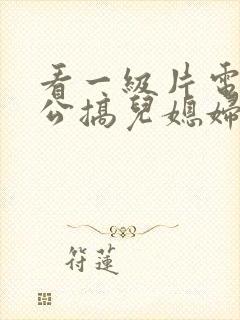 看一級片電
公搞兒媳婦
符蓮